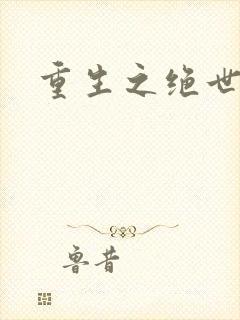 重生之绝世
鲁昔